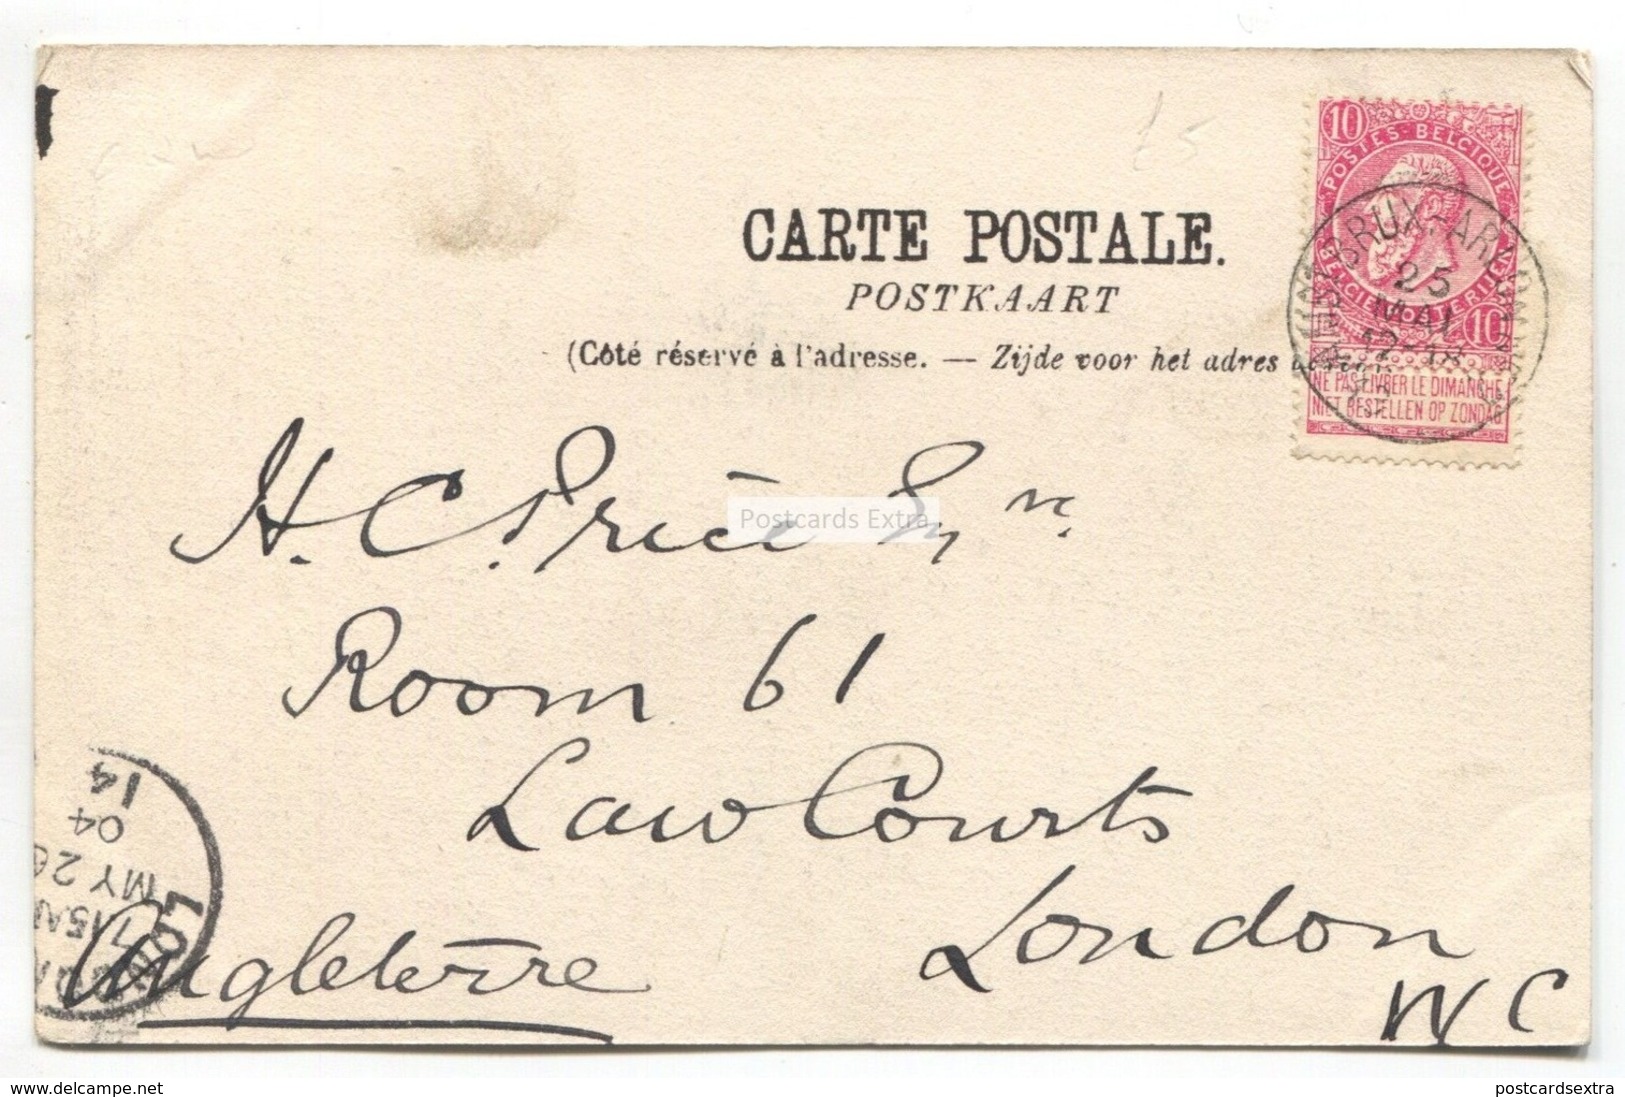 CARTE POSTALE.
POSTKAART
(Côté réservé à l'adresse. — Zijde voor het adres
10
POSTES-BELGIQUE
BRUX
25
MAI
10
NE PAS LIVRER LE DIMANCHE
NIET BESTELLEN OP ZONDAG
£5
H. C. Price Esqre.
Postcards Extra
Room 61
Law Courts
London
W C
Angleterre
LON
7.15AM
MY 26
04
14
delcampe.net
postcardsextra